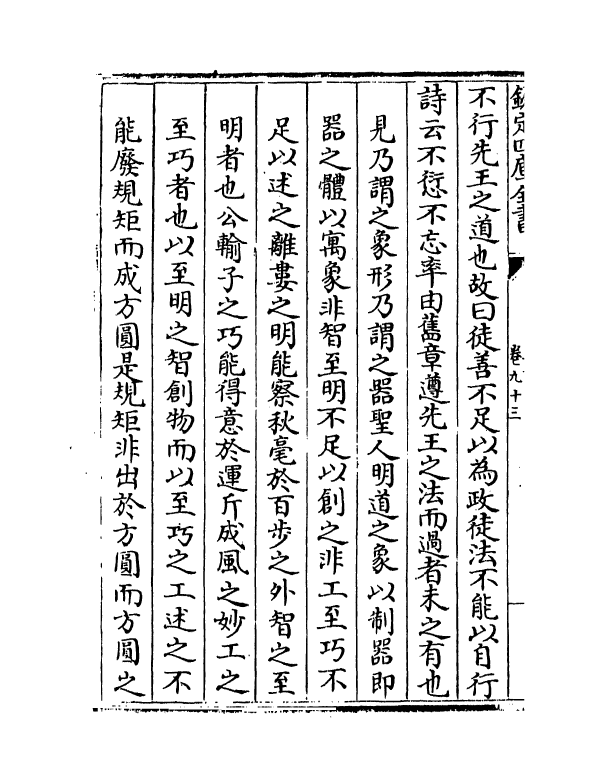 欽定四庫全書
卷九十三
不行先王之道也故曰徒善不足以為政徒法不能以自行
詩云不愆不忘率由舊章遵先王之法而過者未之有也
見乃謂之象形乃謂之器聖人明道之象以制器即
器之體以寓象非智至明不足以創之非工至巧不
足以述之離婁之明能察秋毫於百步之外智之至
明者也公輸子之巧能得意於運斤成風之妙工之
至巧者也以至明之智創物而以至巧之工述之不
能廢規矩而成方圓是規矩非出於方圓而方圓之